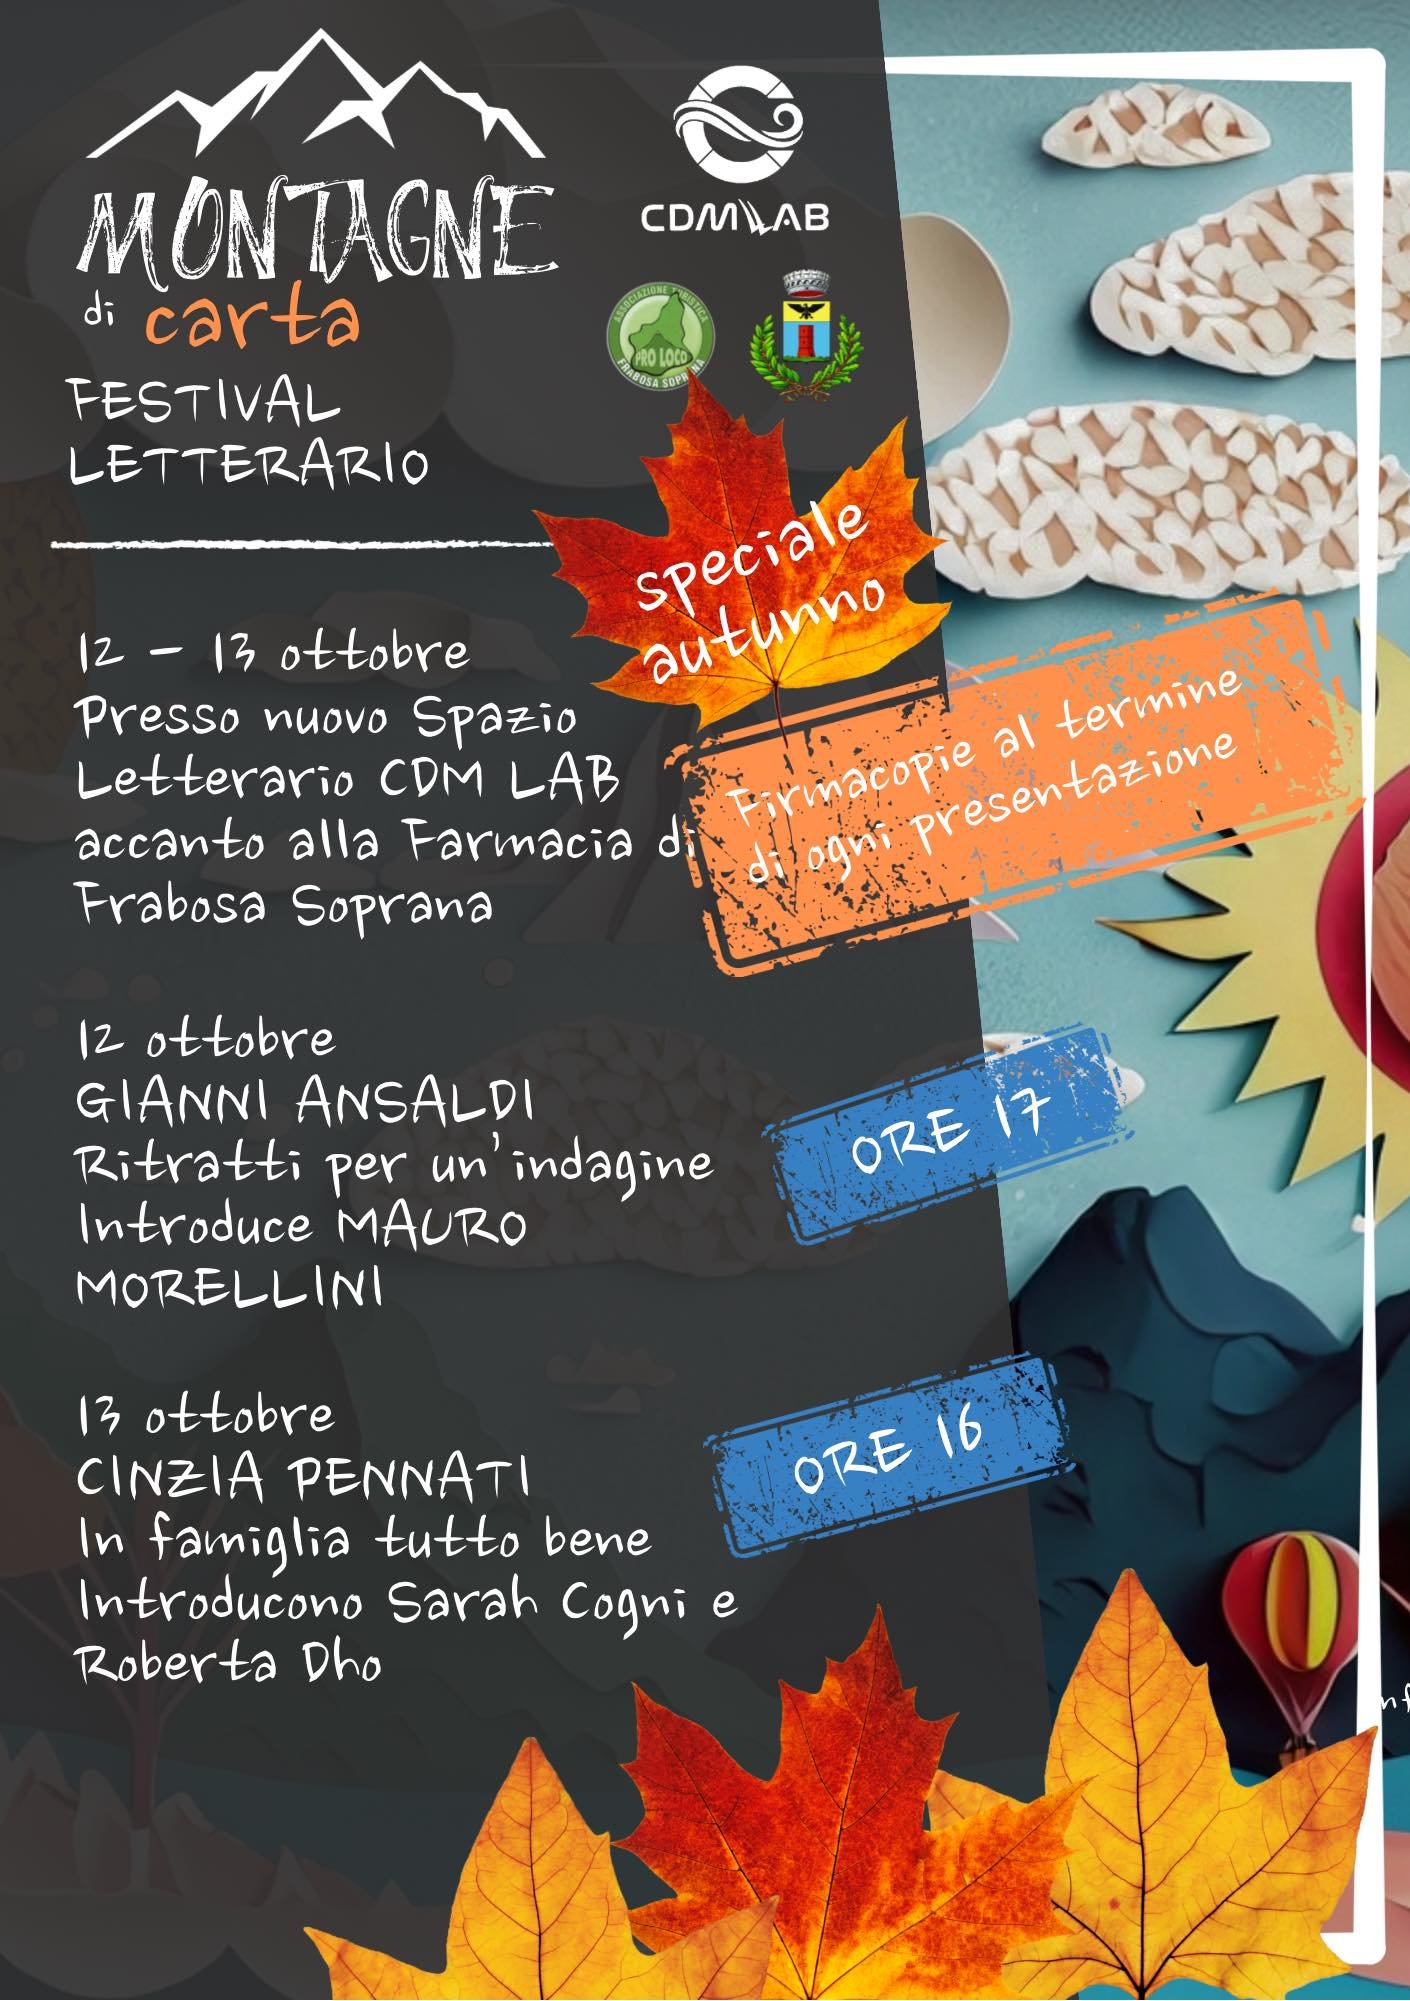 MONTAGNE
di carta
FESTIVAL
LETTERARIO
CDMLAB
ASSOCIAZIONE TURISTICA
PRO LOCO
FRABOSA SOPRANA
speciale
autunno
12 - 13 ottobre
Presso nuovo Spazio
Letterario CDM LAB
accanto alla Farmacia di
Frabosa Soprana
Firmacopie al termine
di ogni presentazione
12 ottobre
GIANNI ANSALDI
Ritratti per un'indagine
Introduce MAURO
MORELLINI
ORE 17
13 ottobre
CINZIA PENNATI
In famiglia tutto bene
Introducono Sarah Cogni e
Roberta Dho
ORE 16